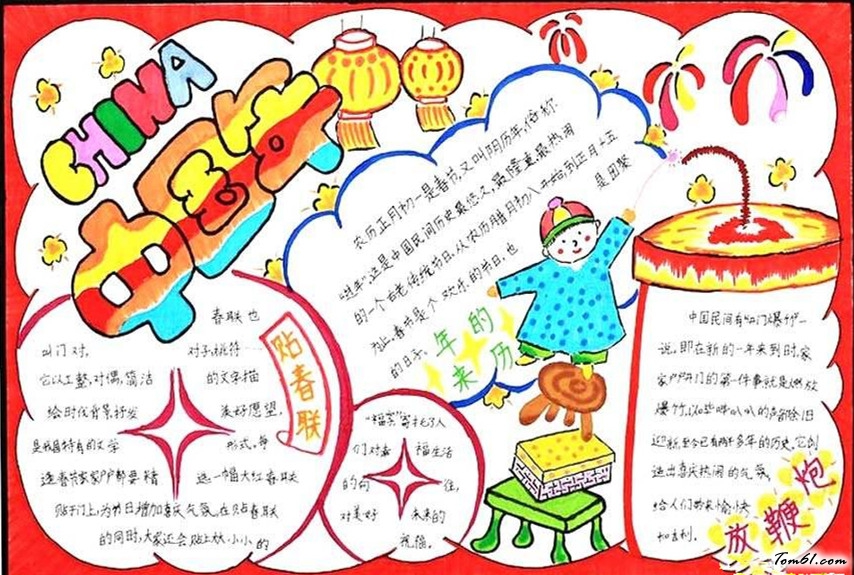 CHINA
中国年
农历正月初一是春节,又叫阴历年,俗称
"过年",这是中国民间历史最悠久,最隆重最热闹
的一个古老传统节日.从农历腊月初八开始,到正月十五
为止.春节是个欢乐的节日,也是团聚
的日子.
年的
来历
春联也
叫门对, 对子,桃符……
它以工整,对偶,简洁 的文字描
绘时代背景抒发 美好愿望,
是我国特有的文学 形式,每
逢春节家家户户都要精 选一幅大红春联
贴于门上,为节日增加喜庆气氛.在贴春联
的同时,大家还会贴上大小小的
贴春联
"福"字寄托了人
们对幸 福生活
的向 往,
对美好 未来的
祝福.
中国民间有"开门爆竹"一
说.即在新的一年来到时,家
家户户开门的第一件事就是燃放
爆竹,以哔叭叭的声音除旧
迎新,至今已有两千多年的历史.它创
造出喜庆热闹的气氛,
给人们带来愉快
和吉利.
放鞭炮
Tom61.com